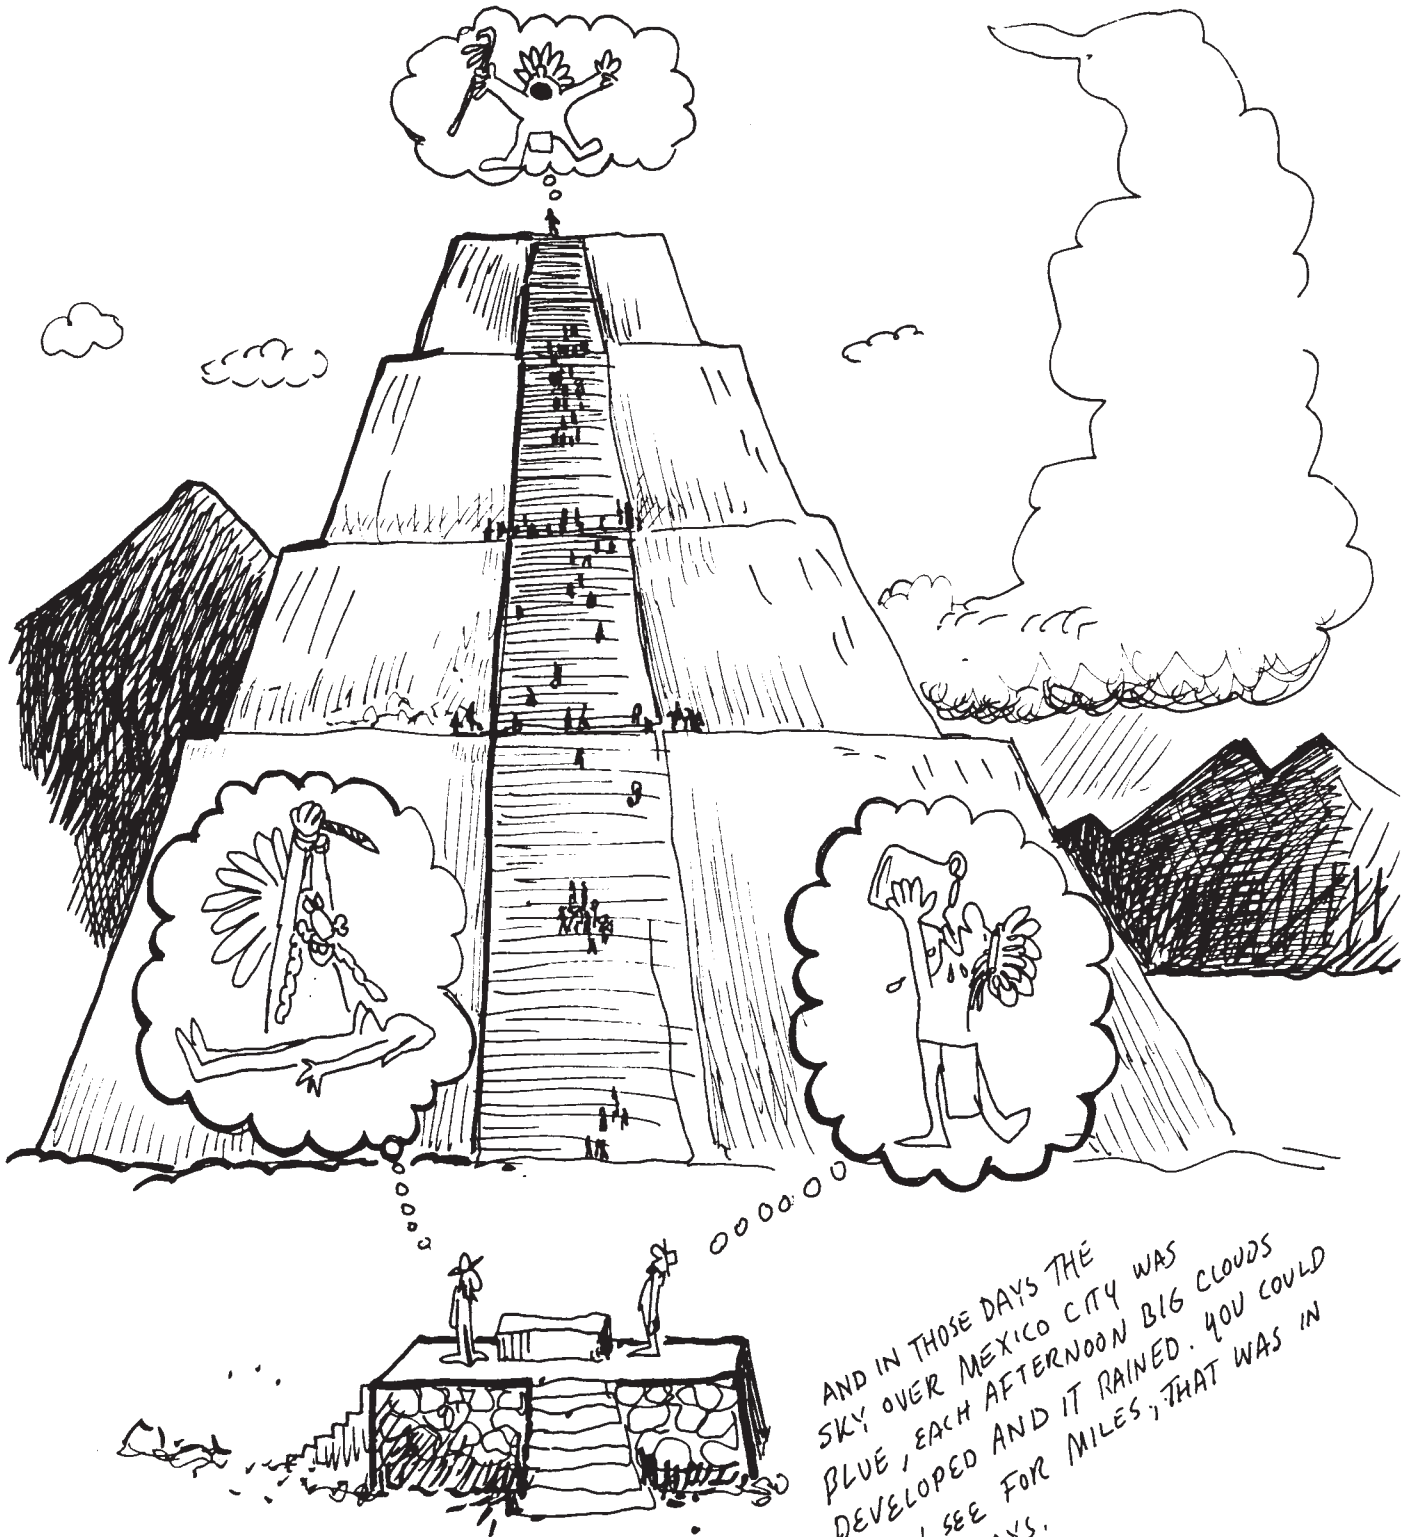 AND IN THOSE DAYS THE
SKY OVER MEXICO CITY WAS
BLUE, EACH AFTERNOON BIG CLOUDS
DEVELOPED AND IT RAINED. YOU COULD
SEE FOR MILES, THAT WAS IN